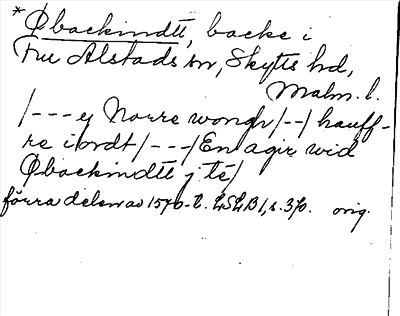 * Øbackindtt, backe i
Fru Alstads sn, Skytts hd,
Malm. l.
/--- ij Norre wongh /--/ hauff-
re i ordt /---/ En agir wid
Øbackindtt j tē/
förra delen av 1570-t. LSLB 1, s. 370. orig.